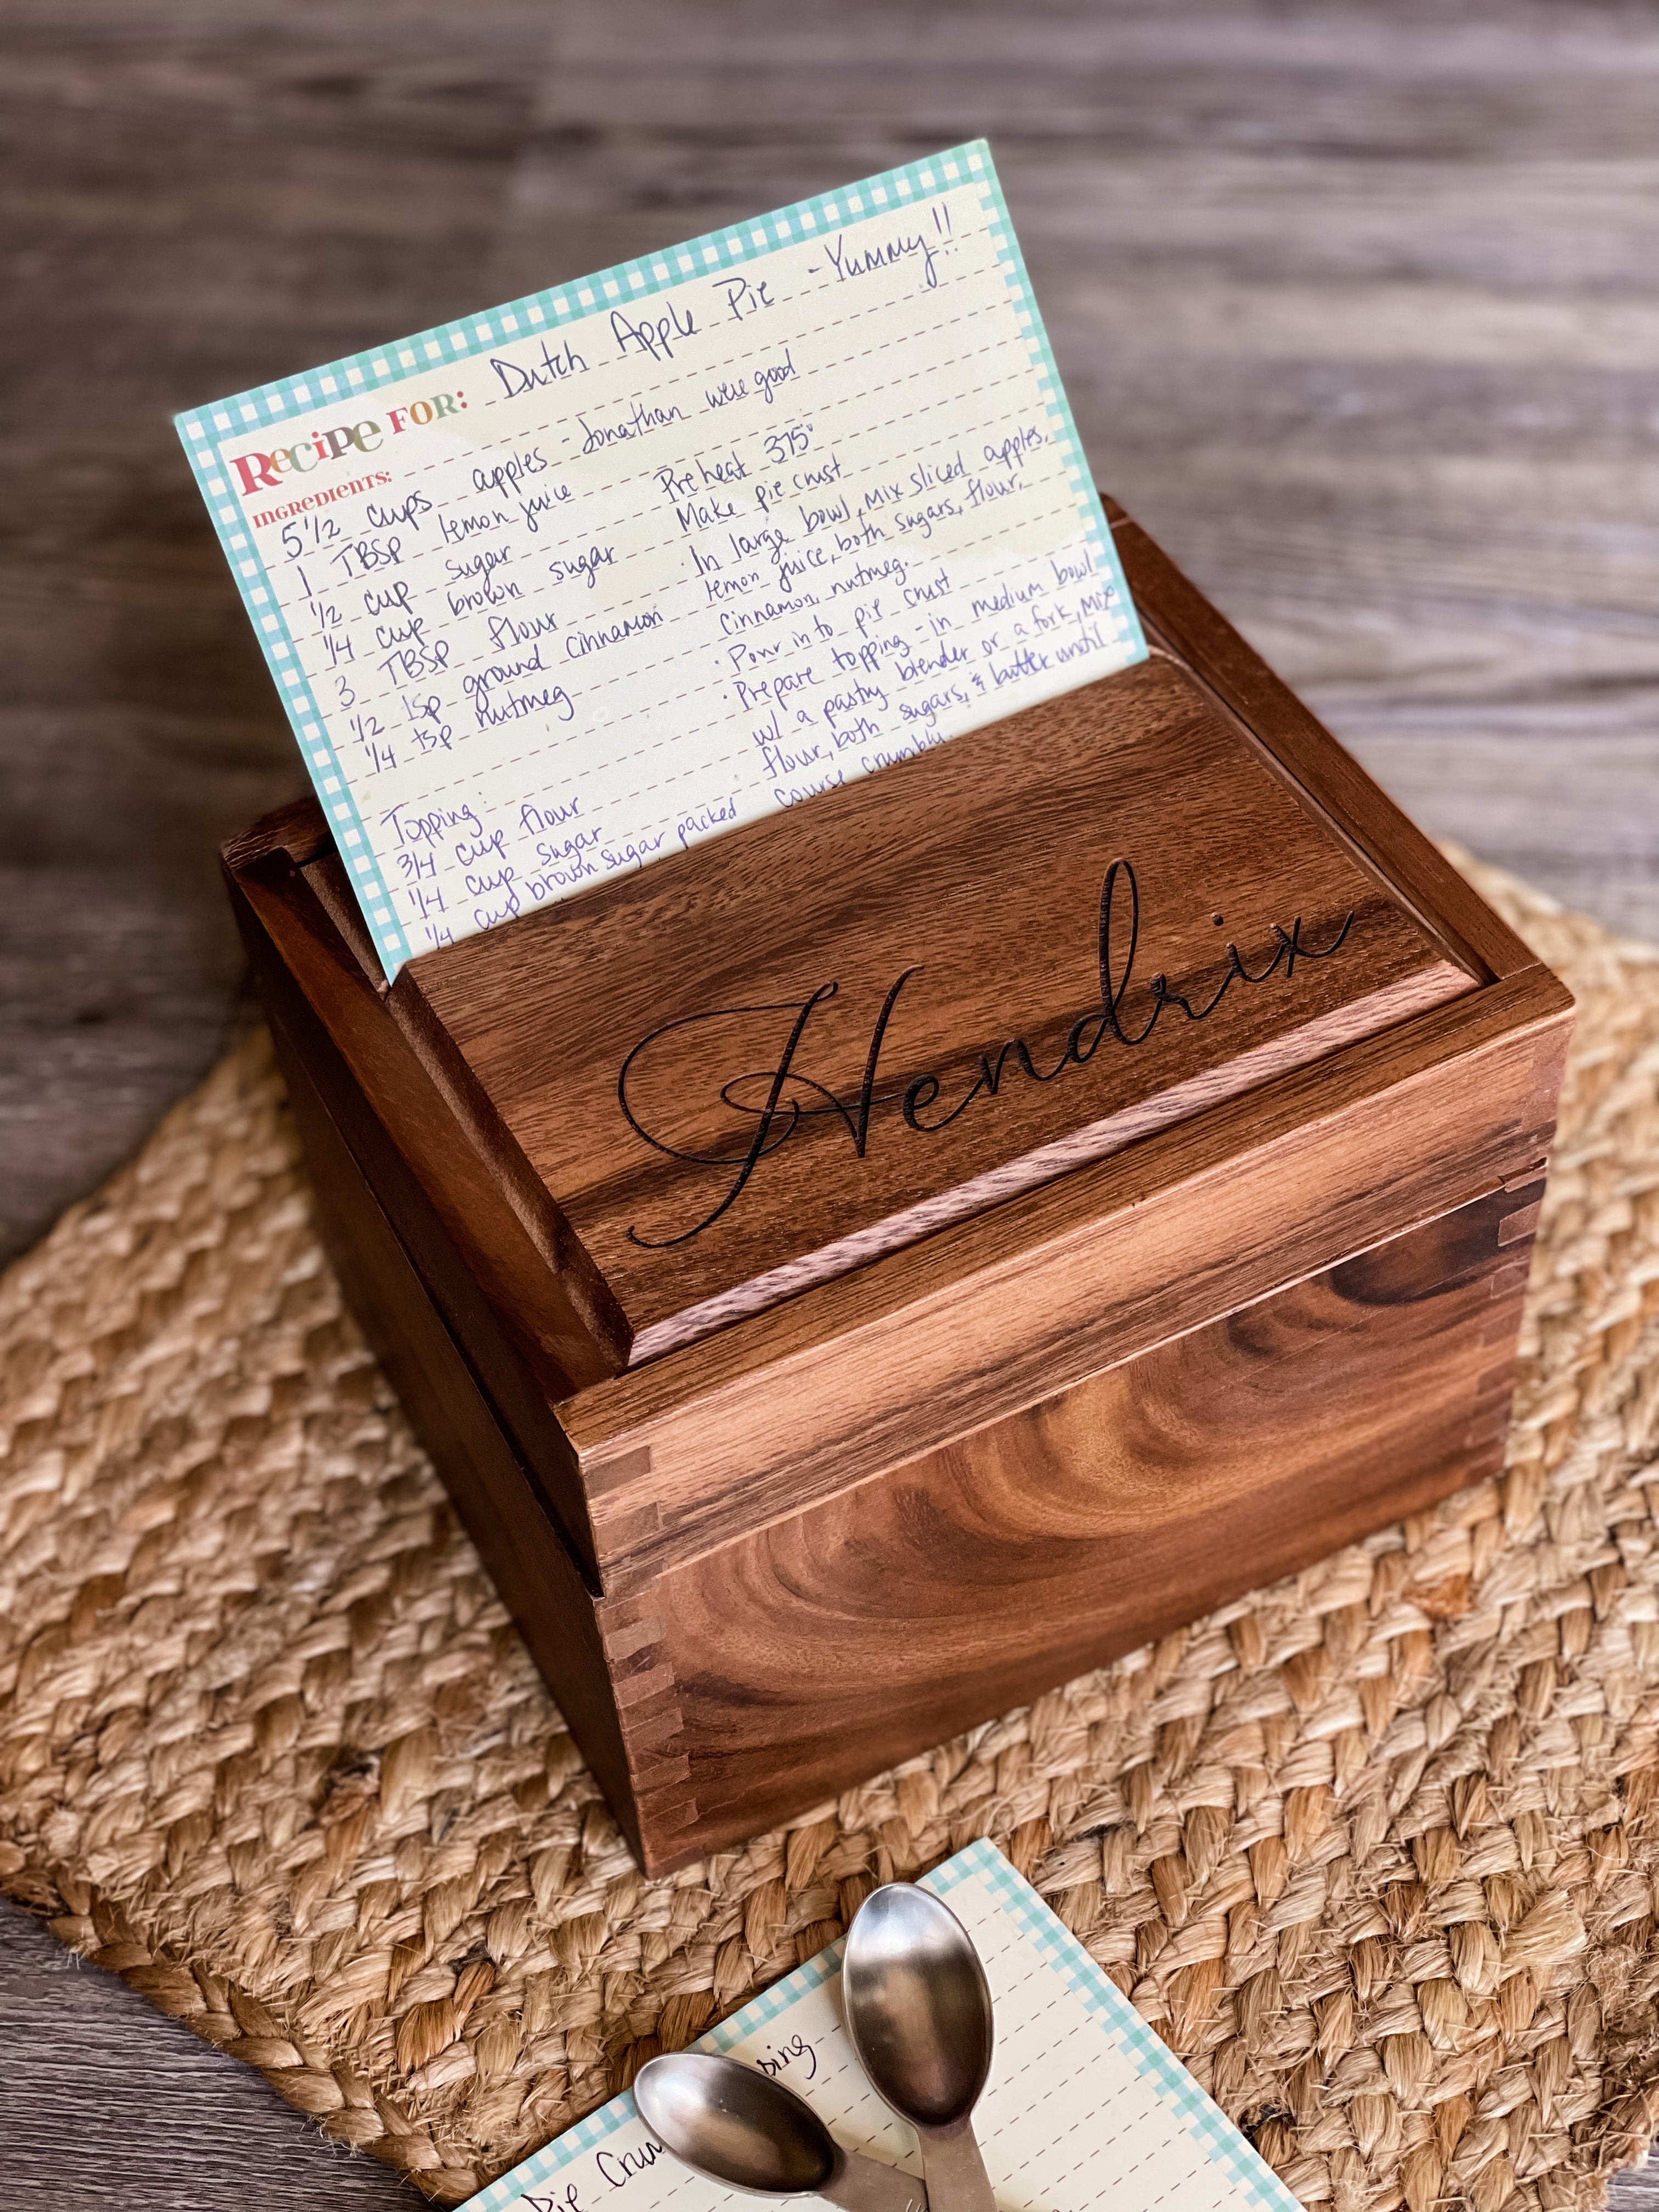 RECIPE FOR: Dutch Apple Pie - Yummy!!
INGREDIENTS:
5 1/2 cups apples - Jonathan were good
1 TBSP lemon juice
1/2 cup sugar
1/4 cup brown sugar
3 TBSP flour
1/2 tsp ground cinnamon
1/4 tsp nutmeg
Topping:
3/4 cup flour
1/4 cup sugar
1/4 cup brown sugar packed
Preheat 375°
Make pie crust
· In large bowl, mix sliced apples,
lemon juice, both sugars, flour,
cinnamon, nutmeg.
· Pour into pie crust
· Prepare topping - in medium bowl
w/ a pastry blender or a fork, mix
flour, both sugars, & butter until
course crumbly.
Hendrix
Pie